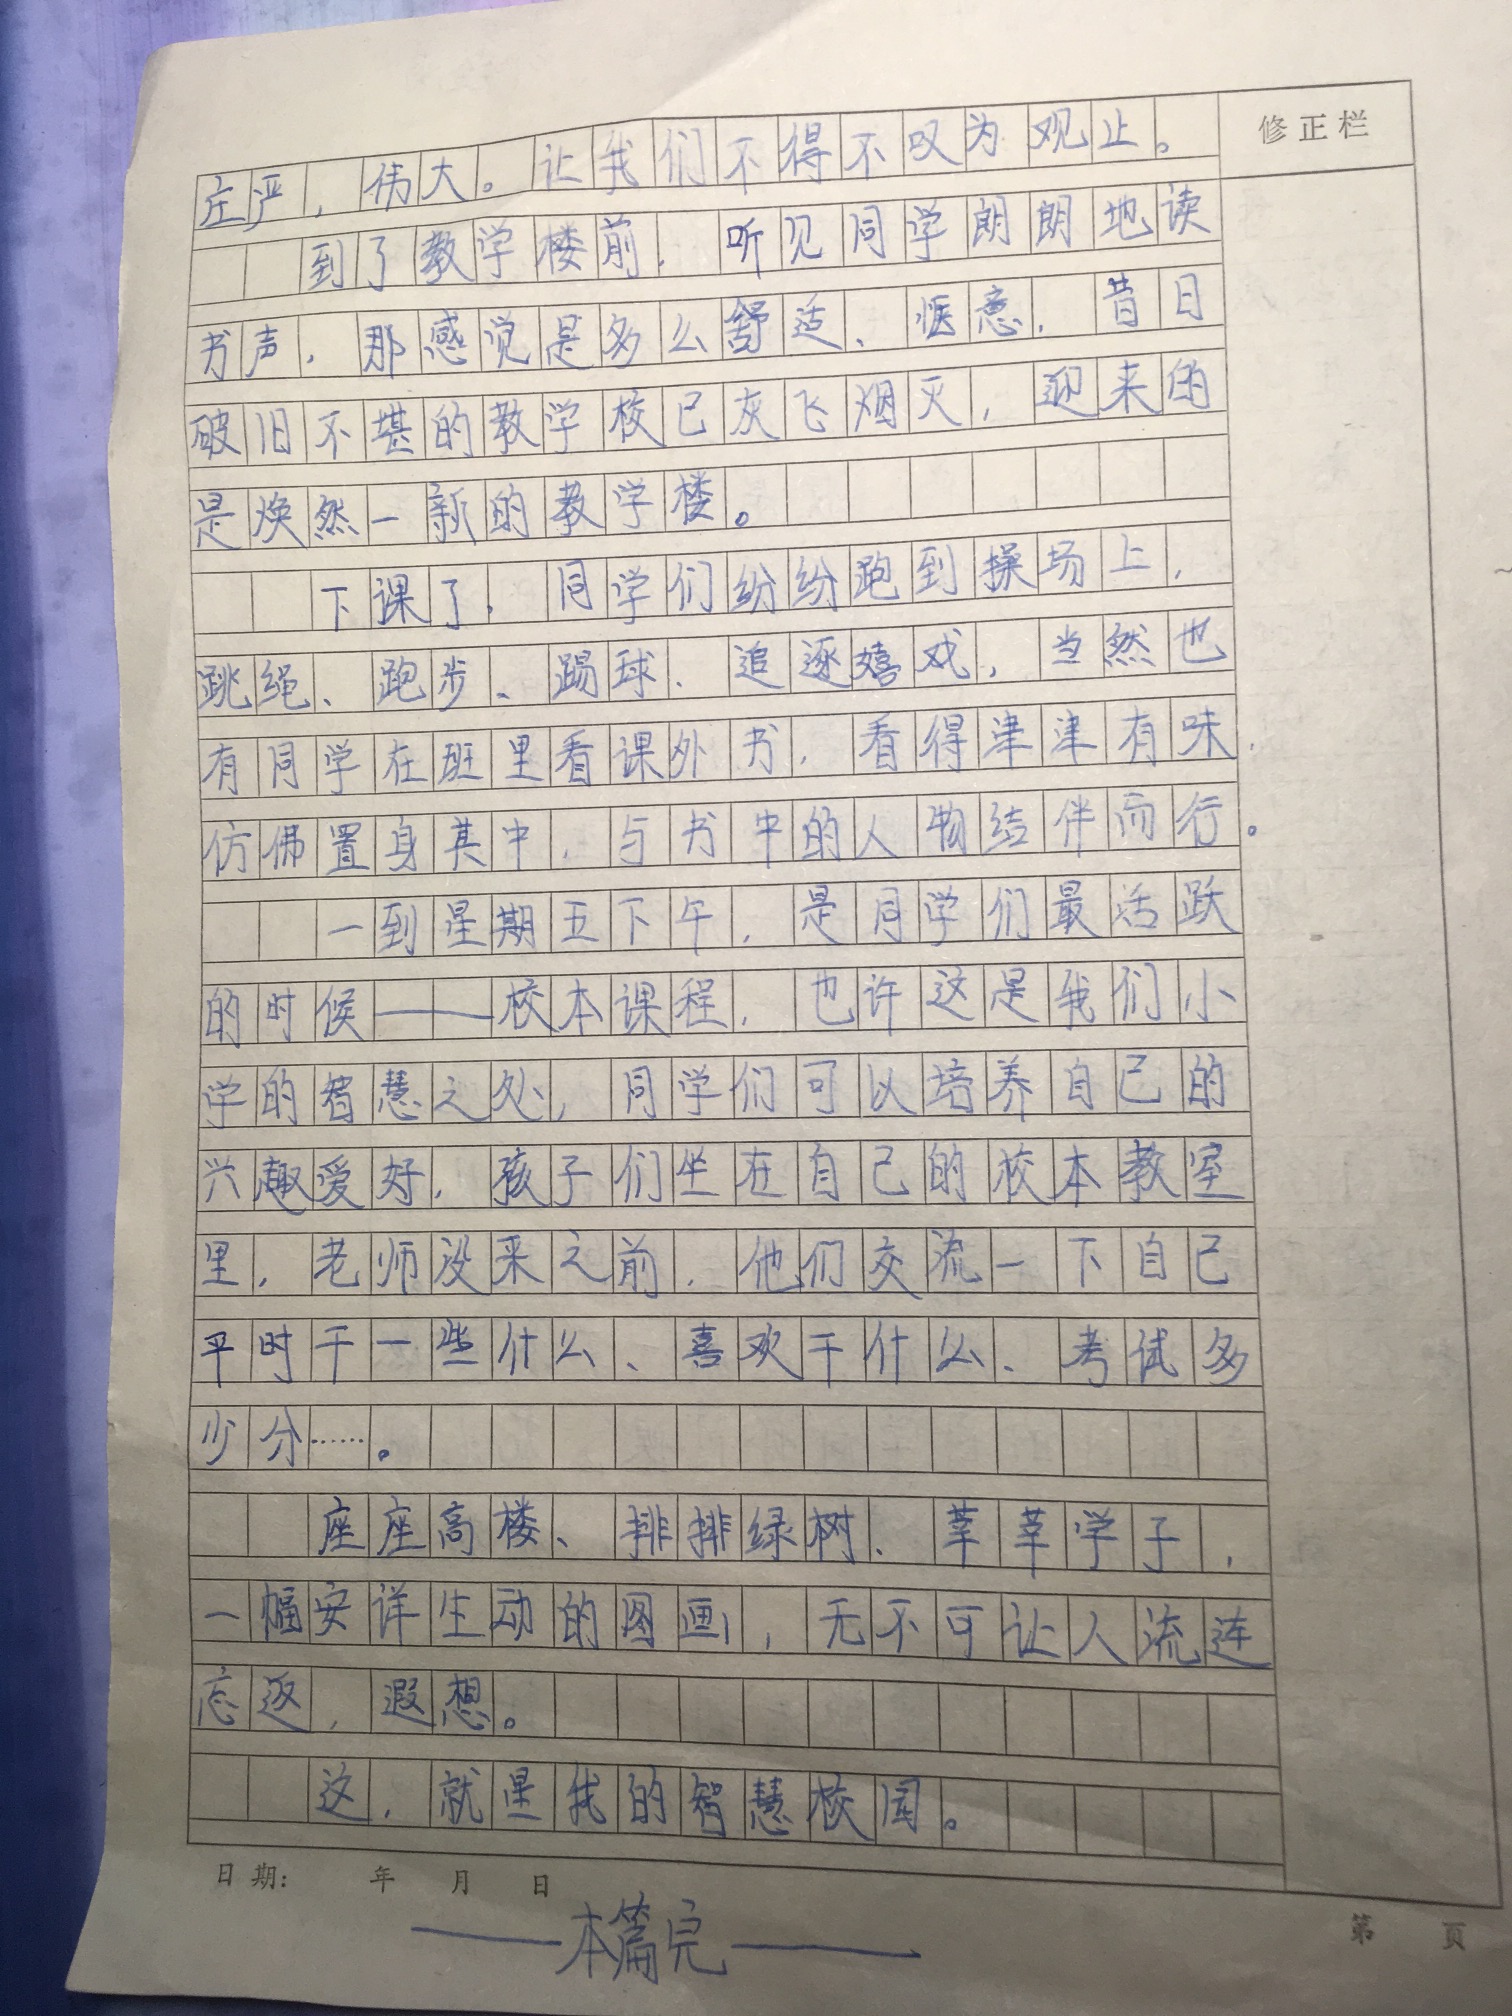 修正栏
庄严，伟大。让我们不得不叹为观止。
到了教学楼前，听见同学朗朗地读
书声，那感觉是多么舒适、惬意，昔日
破旧不堪的教学校已灰飞烟灭，迎来的
是焕然一新的教学楼。
下课了，同学们纷纷跑到操场上，
跳绳、跑步、踢球、追逐嬉戏，当然也
有同学在班里看课外书，看得津津有味，
仿佛置身其中，与书中的人物结伴而行。
一到星期五下午，是同学们最活跃
的时候——校本课程，也许这是我们小
学的智慧之处，同学们可以培养自己的
兴趣爱好，孩子们坐在自己的校本教室
里，老师没来之前，他们交流一下自己
平时干一些什么、喜欢干什么、考试多
少分……。
座座高楼、排排绿树、莘莘学子，
一幅安详生动的图画，无不可让人流连
忘返，遐想。
这，就是我的智慧校园。
日期： 年 月 日
——本篇完——
第 页